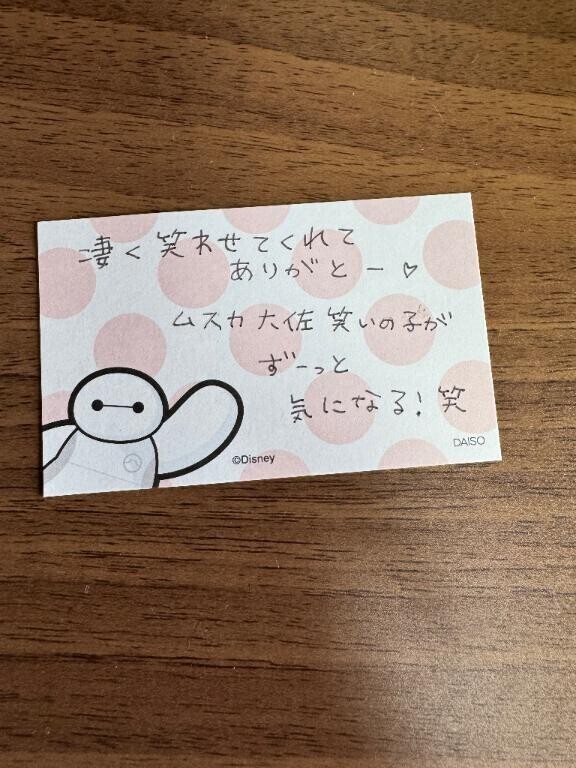 凄く笑わせてくれて
ありがとー♡
ムスカ大佐笑いの子が
ずーっと
気になる!笑
©Disney
DAISO